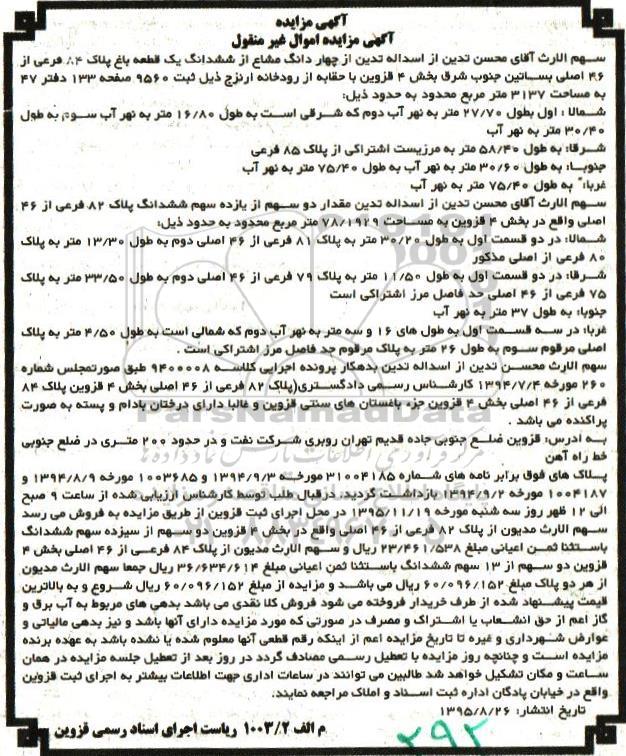 آگهی مزایده
آگهی مزایده اموال غیر منقول
سهم الارث آقای محسن تدین از اسداله تدین از چهار دانگ مشاع از ششدانگ یک قطعه باغ پلاک ۸۴ فرعی از
۴۶ اصلی بساتین جنوب شرق بخش ۴ قزوین با حقابه از رودخانه ارنزج ذیل ثبت ۹۵۶۰ صفحه ۱۳۳ دفتر ۴۷
به مساحت ۳۱۳۷ متر مربع محدود به حدود ذیل:
شمالا : اول بطول ۲۷/۷۰ متر به نهر آب دوم که شرقی است به طول ۱۶/۸۰ متر به نهر آب سوم به طول
۳۰/۴۰ متر به نهر آب
شرقا: به طول ۵۸/۴۰ متر به مرزیست اشتراکی از پلاک ۸۵ فرعی
جنوبا: به طول ۳۰/۶۰ متر به نهر آب به طول ۷۵/۴۰ متر به نهر آب
غربا: به طول ۷۵/۴۰ متر به نهر آب
سهم الارث آقای محسن تدین از اسداله تدین مقدار دو سهم از یازده سهم ششدانگ پلاک ۸۲ فرعی از ۴۶
اصلی واقع در بخش ۴ قزوین به مساحت ۷۸/۱۹۲۹ متر مربع محدود به حدود ذیل:
شمالا: در دو قسمت اول به طول ۳۰/۲۰ متر به پلاک ۸۱ فرعی از ۴۶ اصلی دوم به طول ۱۳/۳۰ متر به پلاک
۸۰ فرعی از اصلی مذکور
شرقا: در دو قسمت اول به طول ۱۱/۵۰ متر به پلاک ۷۹ فرعی از ۴۶ اصلی دوم به طول ۳۳/۵۰ متر به پلاک
۷۵ فرعی از ۴۶ اصلی حد فاصل مرز اشتراکی است
جنوبا: به طول ۳۷ متر به نهر آب
غربا: در سه قسمت اول به طول های ۱۶ و سه متر به نهر آب دوم که شمالی است به طول ۴/۵۰ متر به پلاک
اصلی مرقوم سوم به طول ۲۶ متر به پلاک مرقوم حد فاصل مرز اشتراکی است .
سهم الارث محسن تدین از اسداله تدین بدهکار پرونده اجرایی کلاسه ۹۴۰۰۰۰۸ طبق صورتمجلس شماره
۲۶۰ مورخه ۱۳۹۴/۷/۴ کارشناس رسمی دادگستری(پلاک ۸۲ فرعی از ۴۶ اصلی بخش ۴ قزوین پلاک ۸۴
فرعی از ۴۶ اصلی بخش ۴ قزوین جزء باغستان های سنتی قزوین و غالبا دارای درختان بادام و پسته به صورت
پراکنده می باشد .
به آدرس: قزوین ضلع جنوبی جاده قدیم تهران روبری شرکت نفت و در حدود ۲۰۰ متری در ضلع جنوبی
خط راه آهن
پلاک های فوق برابر نامه های شماره ۳۱۰۰۴۱۸۵ مورخه ۱۳۹۴/۹/۳ و ۱۰۰۳۶۸۵ مورخه ۱۳۹۴/۸/۹ و
۱۰۰۴۱۸۷ مورخه ۱۳۹۴/۹/۲ بازداشت گردید. درقبال طلب توسط کارشناس ارزیابی شده از ساعت ۹ صبح
الی ۱۲ ظهر روز سه شنبه مورخه ۱۳۹۵/۱۱/۱۹ در محل اجرای ثبت قزوین از طریق مزایده به فروش می رسد
سهم الارث مدیون از پلاک ۸۲ فرعی از ۴۶ اصلی واقع در بخش ۴ قزوین دو سهم از سیزده سهم ششدانگ
باستثنا ثمن اعیانی مبلغ ۲۳/۴۶۱/۵۳۸ ریال و سهم الارث مدیون از پلاک ۸۴ فرعی از ۴۶ اصلی بخش ۴
قزوین دو سهم از ۱۳ سهم ششدانگ باستثنا ثمن اعیانی مبلغ ۳۶/۶۳۴/۶۱۴ ریال جمعا سهم الارث مدیون
از هر دو پلاک مبلغ ۶۰/۰۹۶/۱۵۲ ریال می باشد و مزایده از مبلغ ۶۰/۰۹۶/۱۵۲ ریال شروع و به بالاترین
قیمت پیشنهاد شده از طرف خریدار فروخته می شود فروش کلا نقدی می باشد بدهی های مربوط به آب برق و
گاز اعم از حق انشعاب یا اشتراک و مصرف در صورتی که مورد مزایده دارای آنها باشد و نیز بدهی مالیاتی و
عوارض شهرداری و غیره تا تاریخ مزایده اعم از اینکه رقم قطعی آنها معلوم شده یا نشده باشد به عهده برنده
مزایده است و چنانچه روز مزایده با تعطیل رسمی مصادف گردد در روز بعد از تعطیل جلسه مزایده در همان
ساعت و مکان تشکیل خواهد شد طالبین می توانند در ساعات اداری جهت اطلاعات بیشتر به اجرای ثبت قزوین
واقع در خیابان پادگان اداره ثبت اسناد و املاک مراجعه نمایند.
تاریخ انتشار: ۱۳۹۵/۸/۲۶
م الف ۱۰۰۳/۲ ریاست اجرای اسناد رسمی قزوین
۲۹۲
ParsNamadData